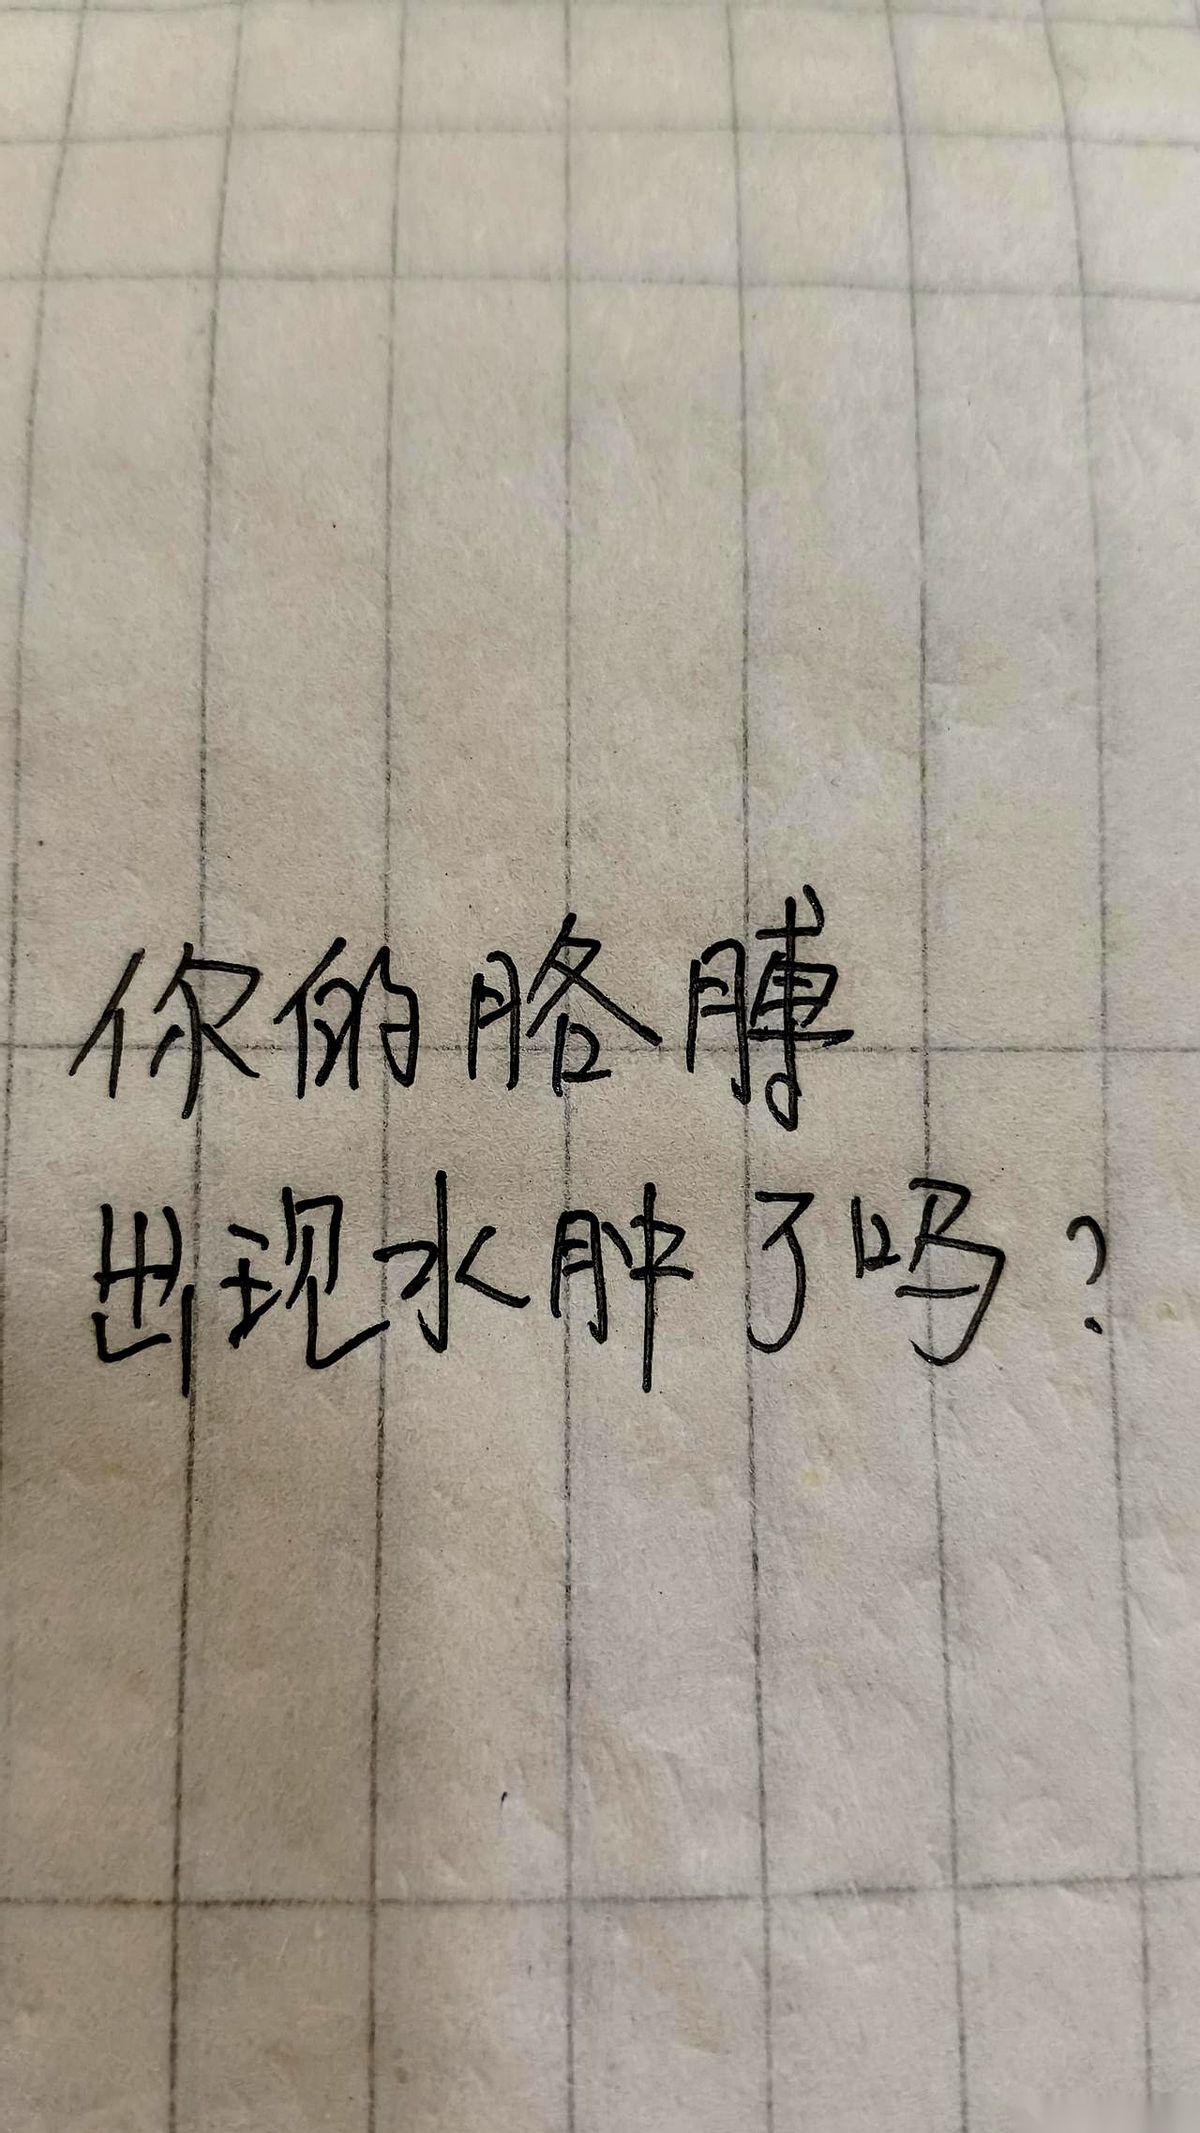 你的胳膊
出现水肿了吗?